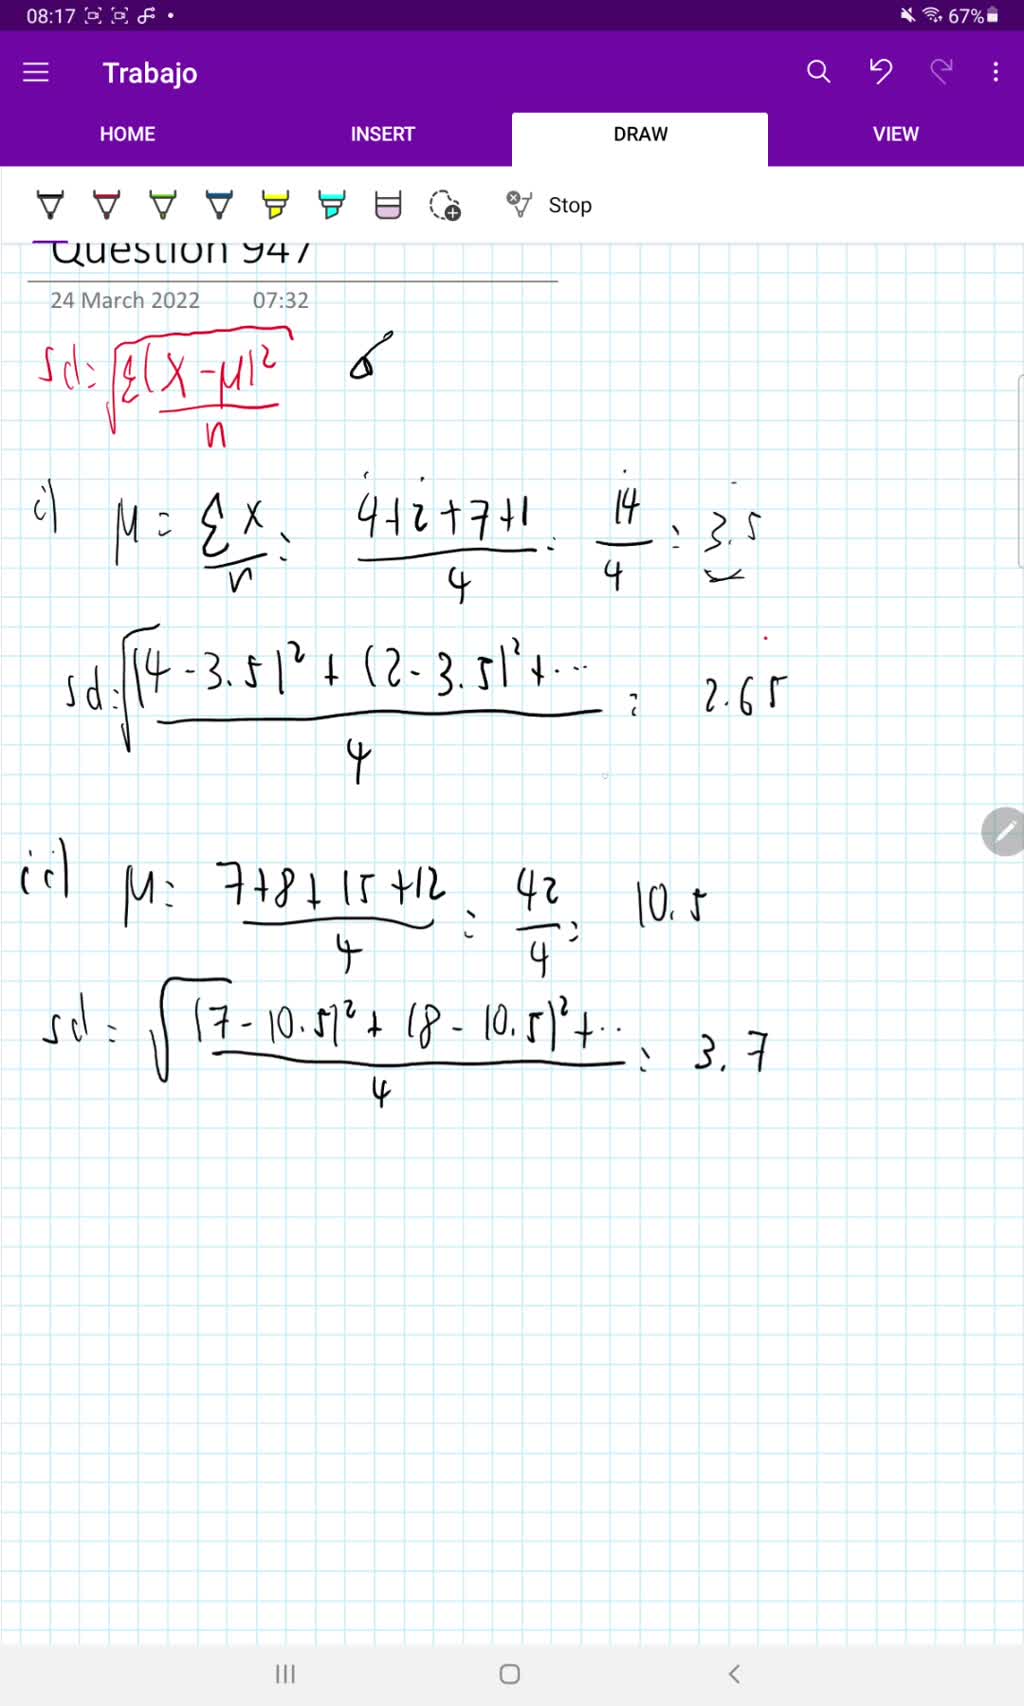 08:17 67%
Trabajo
HOME INSERT DRAW VIEW
Stop
Question 947
24 March 2022 07:32
sd = √Σ(x - μ)² / n
i) μ = Σx / n = 4+2+7+1 / 4 = 14 / 4 = 3.5
sd = √(4 - 3.5)² + (2 - 3.5)² + ... / 4 = 2.65
ii) μ = 7+8+15+12 / 4 = 42 / 4 = 10.5
sd = √(7 - 10.5)² + (8 - 10.5)² + ... / 4 = 3.7